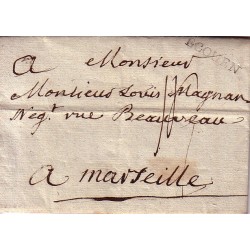 A Monsieur
Monsieur Louis Magnan
Neg.t rue Beauveau
A marseille